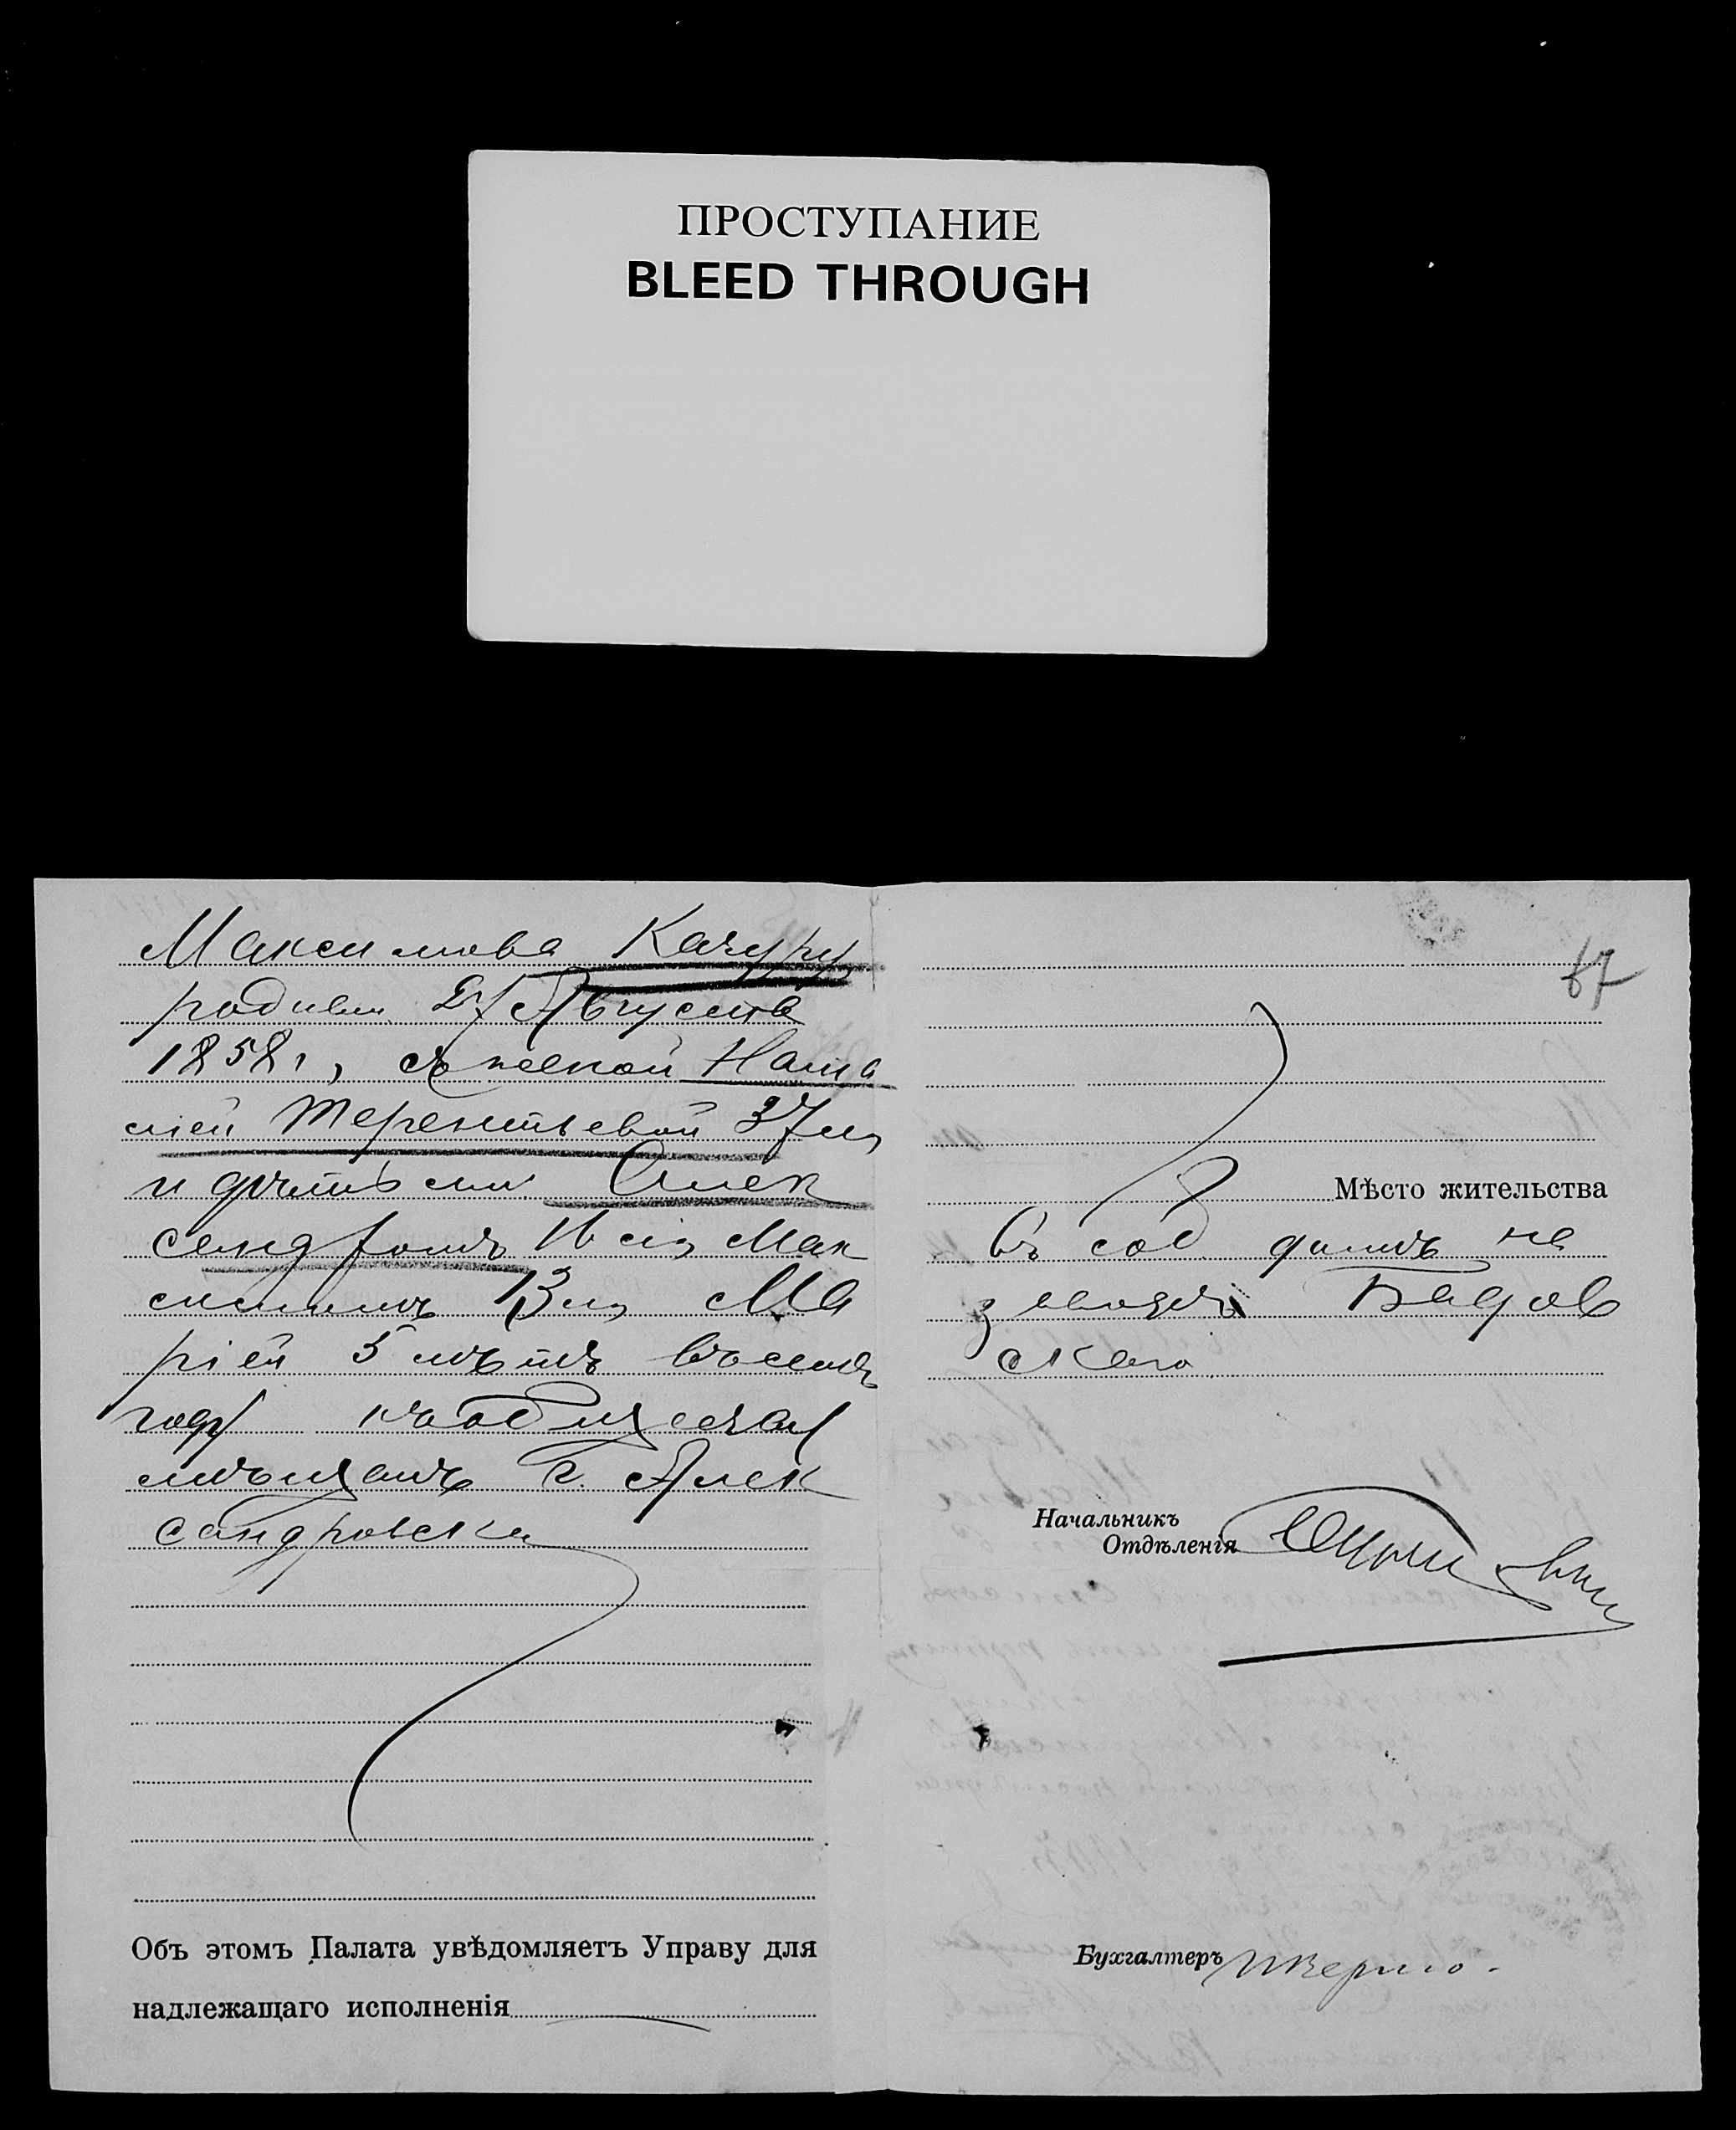 ПРОСТУПАНИЕ
BLEED THROUGH
Максимова Качуру
родивш. 27 Августа
1858 г., съ женой Ната
лiей Терентьевой 37 л.,
и дѣтьми: Алек
сандромъ 16 л., Мак
симомъ 13 л., Ма
рiей 5 лѣтъ въ семъ
году къ обществу
мѣщанъ г. Алек
сандровска
Объ этомъ Палата увѣдомляетъ Управу для
надлежащаго исполненія
67
Мѣсто жительства
въ соб. домѣ на
заводѣ Бадов
скаго
Начальникъ
Отдѣленія
Бухгалтеръ